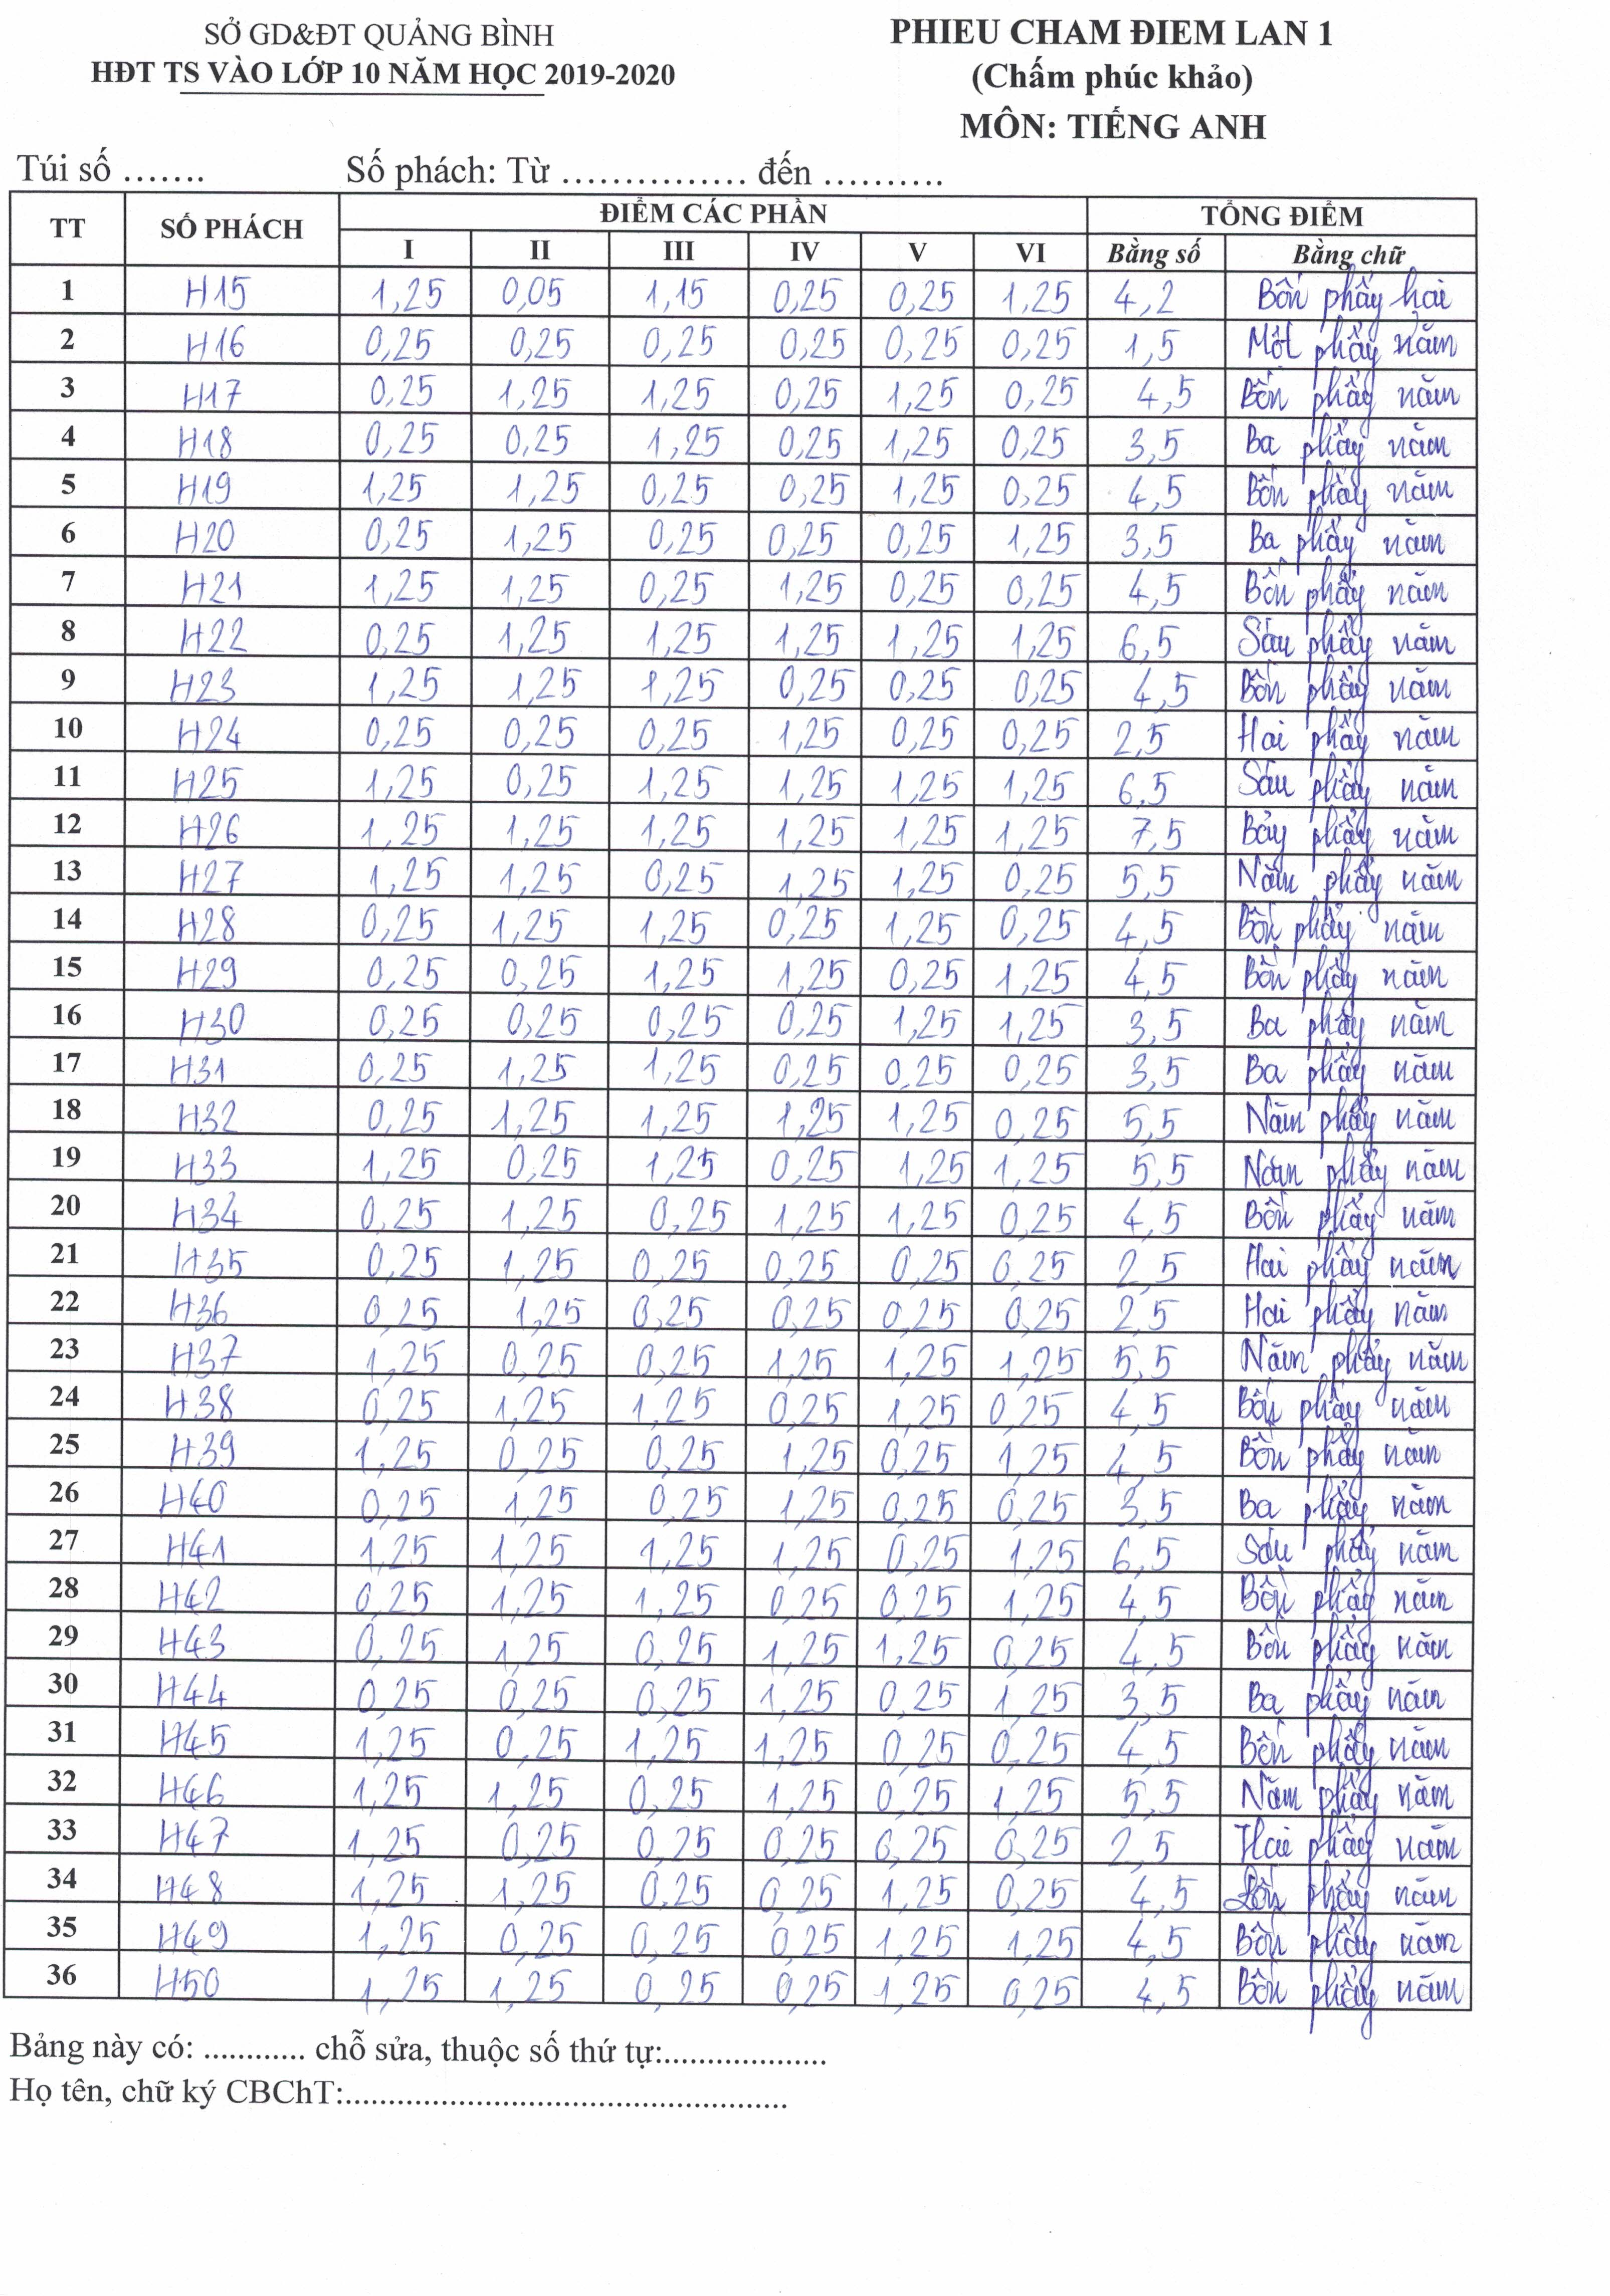 SỞ GD&ĐT QUẢNG BÌNH
HĐT TS VÀO LỚP 10 NĂM HỌC 2019-2020
PHIEU CHAM ĐIEM LAN 1
(Chấm phúc khảo)
MÔN: TIẾNG ANH
Túi số ....... Số phách: Từ ............... đến ..........
TT SỐ PHÁCH ĐIỂM CÁC PHẦN TỔNG ĐIỂM
I II III IV V VI Bằng số Bằng chữ
1 H15 1,25 0,05 1,15 0,25 0,25 1,25 4,2 Bốn phẩy hai
2 H16 0,25 0,25 0,25 0,25 0,25 0,25 1,5 Một phẩy năm
3 H17 0,25 1,25 1,25 0,25 1,25 0,25 4,5 Bốn phẩy năm
4 H18 0,25 0,25 1,25 0,25 1,25 0,25 3,5 Ba phẩy năm
5 H19 1,25 1,25 0,25 0,25 1,25 0,25 4,5 Bốn phẩy năm
6 H20 0,25 1,25 0,25 0,25 0,25 1,25 3,5 Ba phẩy năm
7 H21 1,25 1,25 0,25 1,25 0,25 0,25 4,5 Bốn phẩy năm
8 H22 0,25 1,25 1,25 1,25 1,25 1,25 6,5 Sáu phẩy năm
9 H23 1,25 1,25 1,25 0,25 0,25 0,25 4,5 Bốn phẩy năm
10 H24 0,25 0,25 0,25 1,25 0,25 0,25 2,5 Hai phẩy năm
11 H25 1,25 0,25 1,25 1,25 1,25 1,25 6,5 Sáu phẩy năm
12 H26 1,25 1,25 1,25 1,25 1,25 1,25 7,5 Bảy phẩy năm
13 H27 1,25 1,25 0,25 1,25 1,25 0,25 5,5 Năm phẩy năm
14 H28 0,25 1,25 1,25 0,25 1,25 0,25 4,5 Bốn phẩy năm
15 H29 0,25 0,25 1,25 1,25 0,25 1,25 4,5 Bốn phẩy năm
16 H30 0,25 0,25 0,25 0,25 1,25 1,25 3,5 Ba phẩy năm
17 H31 0,25 1,25 1,25 0,25 0,25 0,25 3,5 Ba phẩy năm
18 H32 0,25 1,25 1,25 1,25 1,25 0,25 5,5 Năm phẩy năm
19 H33 1,25 0,25 1,25 0,25 1,25 1,25 5,5 Năm phẩy năm
20 H34 0,25 1,25 0,25 1,25 1,25 0,25 4,5 Bốn phẩy năm
21 H35 0,25 1,25 0,25 0,25 0,25 0,25 2,5 Hai phẩy năm
22 H36 0,25 1,25 0,25 0,25 0,25 0,25 2,5 Hai phẩy năm
23 H37 1,25 0,25 0,25 1,25 1,25 1,25 5,5 Năm phẩy năm
24 H38 0,25 1,25 1,25 0,25 1,25 0,25 4,5 Bốn phẩy năm
25 H39 1,25 0,25 0,25 1,25 0,25 1,25 4,5 Bốn phẩy năm
26 H40 0,25 1,25 0,25 1,25 0,25 0,25 3,5 Ba phẩy năm
27 H41 1,25 1,25 1,25 1,25 0,25 1,25 6,5 Sáu phẩy năm
28 H42 0,25 1,25 1,25 0,25 0,25 1,25 4,5 Bốn phẩy năm
29 H43 0,25 1,25 0,25 1,25 1,25 0,25 4,5 Bốn phẩy năm
30 H44 0,25 0,25 0,25 1,25 0,25 1,25 3,5 Ba phẩy năm
31 H45 1,25 0,25 1,25 1,25 0,25 0,25 4,5 Bốn phẩy năm
32 H46 1,25 1,25 0,25 1,25 0,25 1,25 5,5 Năm phẩy năm
33 H47 1,25 0,25 0,25 0,25 0,25 0,25 2,5 Hai phẩy năm
34 H48 1,25 1,25 0,25 0,25 1,25 0,25 4,5 Bốn phẩy năm
35 H49 1,25 0,25 0,25 0,25 1,25 1,25 4,5 Bốn phẩy năm
36 H50 1,25 1,25 0,25 0,25 1,25 0,25 4,5 Bốn phẩy năm
Bảng này có: ............ chỗ sửa, thuộc số thứ tự:...................
Họ tên, chữ ký CBChT:....................................................